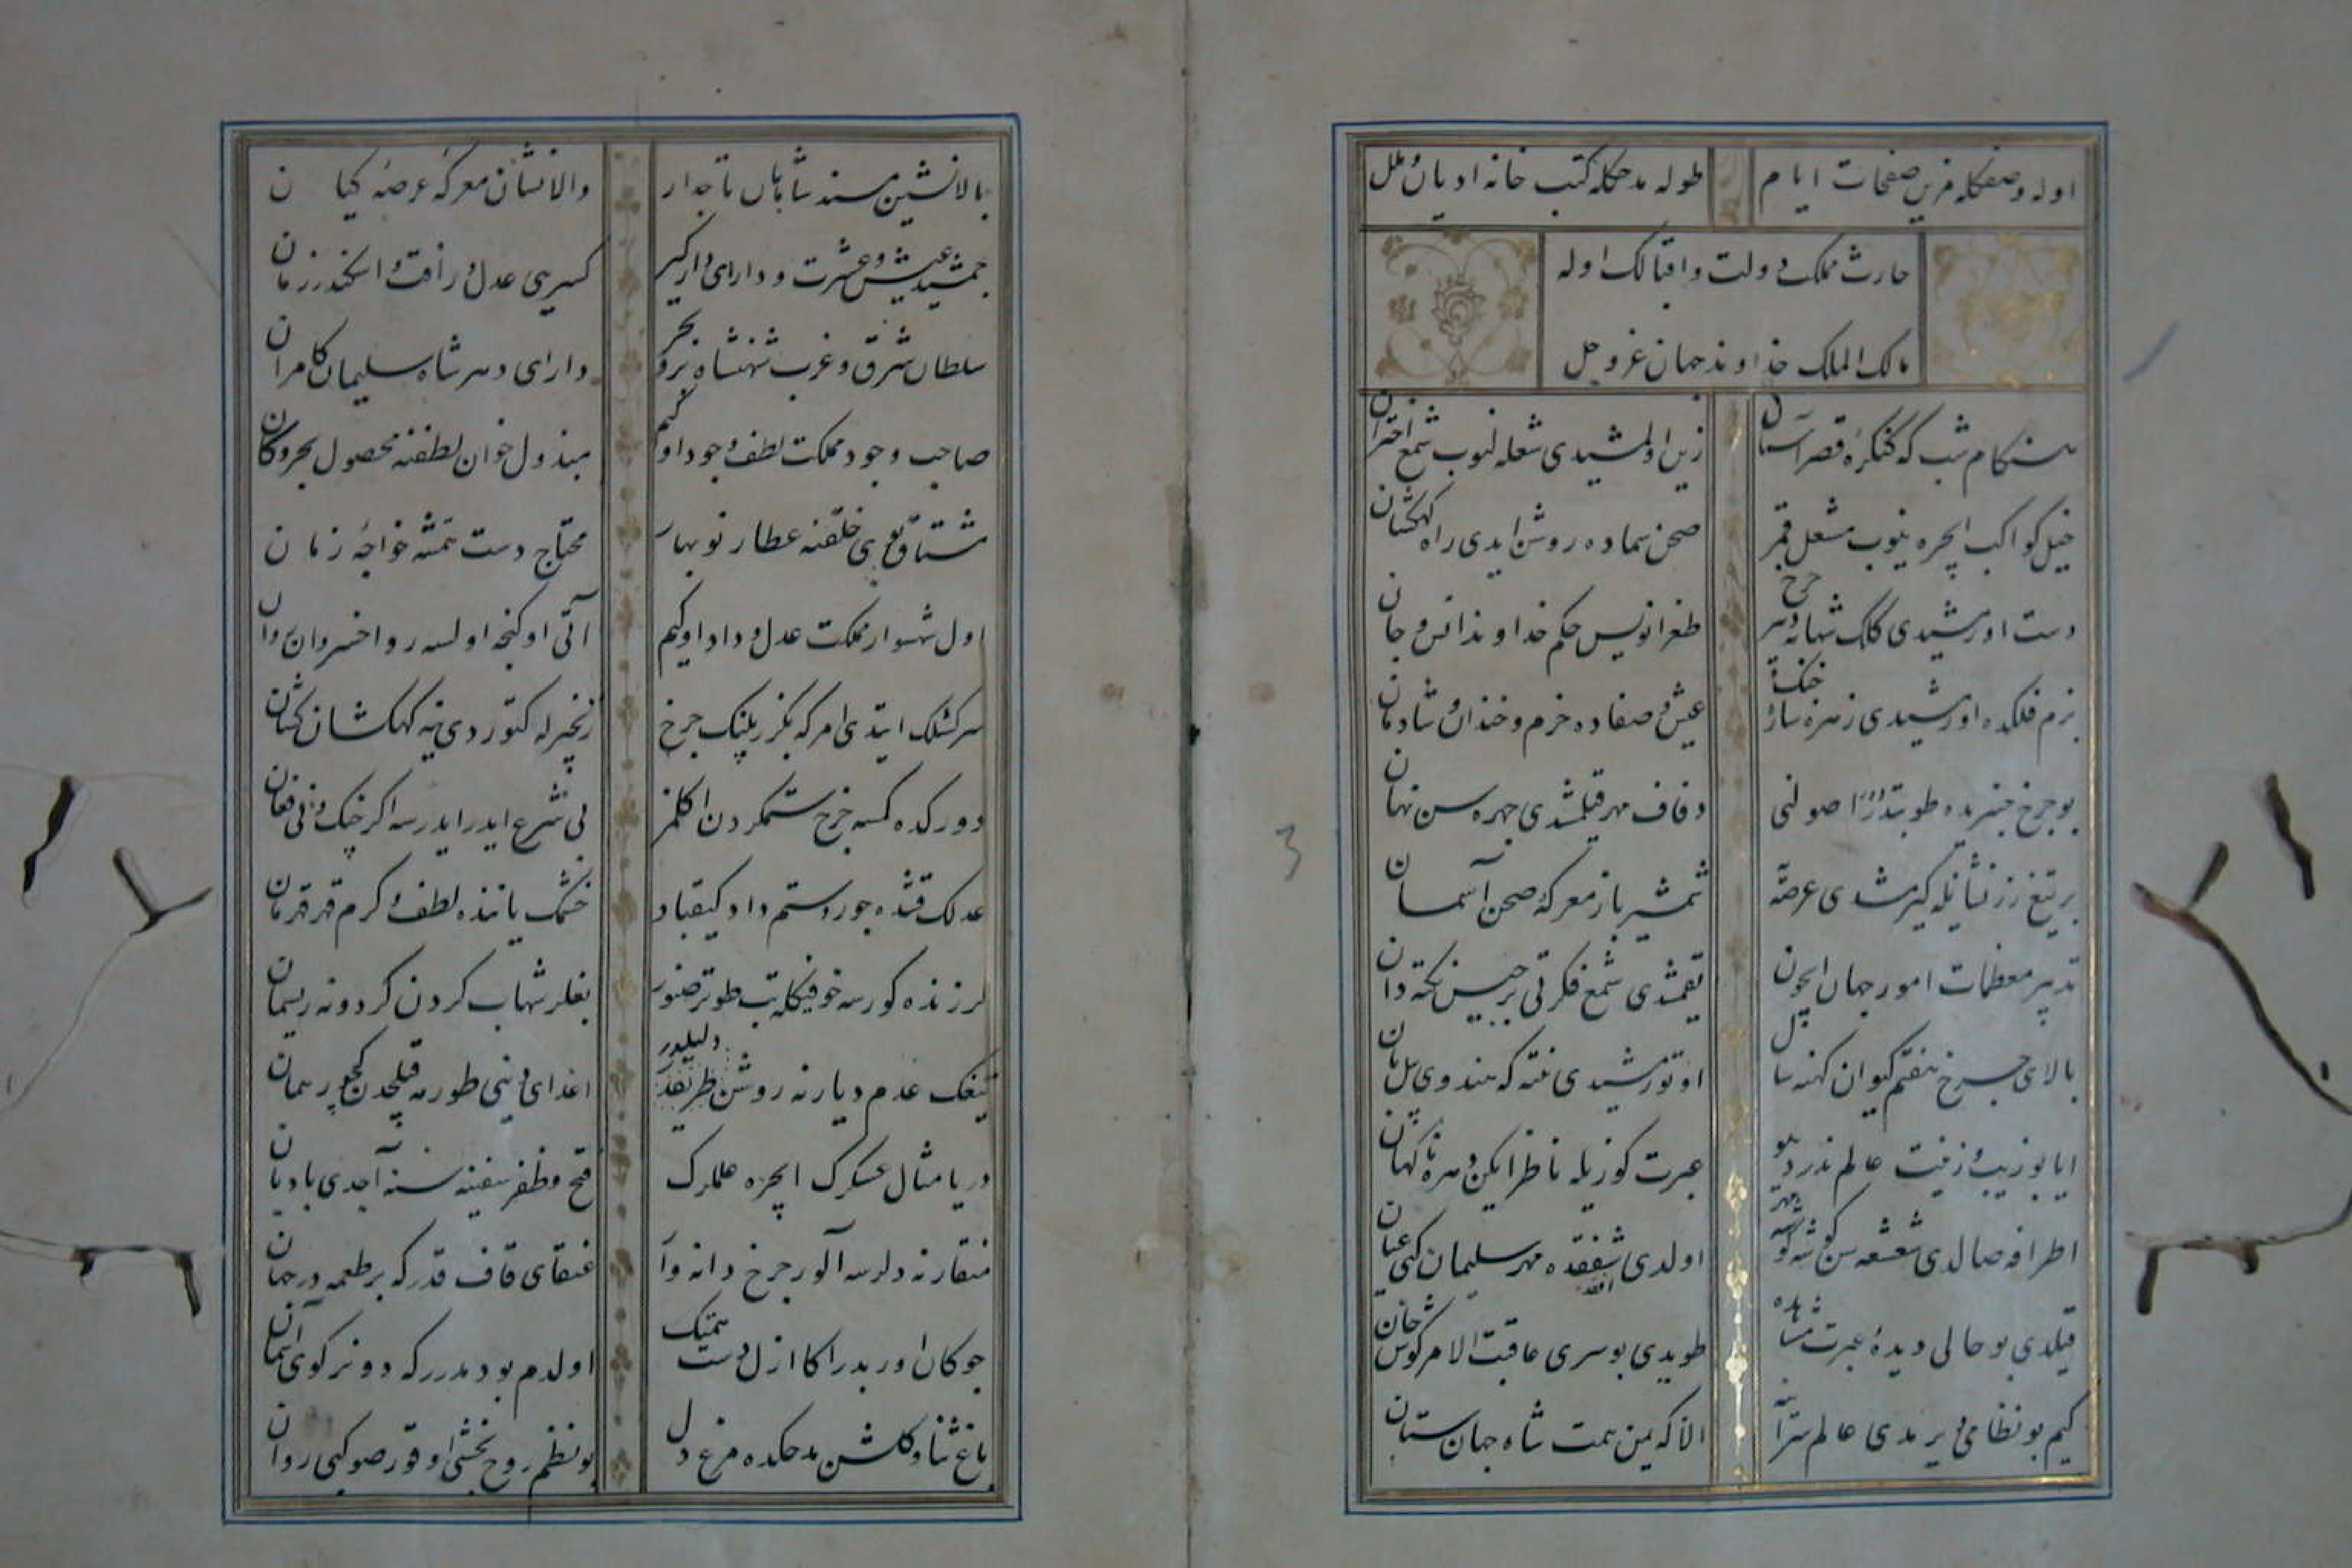 اوله وصفکله مزین صفحات ایام
طوله مدحکله کتب خانه ادیان و ملل
حارث مملکت و دولت و اقبالک اوله
مالک الملک خداوند جهان عز و جل
هنکام شب که کنکرهٔ قصر آسمان
زین اولمشیدی شعله لنوب شمع اختران
خیل کواکب ایچره ینوب مشعل قمر
صحن سماده روشن ایدی راه کهکشان
دست اورمشیدی کلک شهابه دبیر چرخ
طغرانویس حکم خداوند انس و جان
بزم فلکده اورمشیدی زهره سازه چنک
عیش و صفاده خرم و خندان و شادمان
بو چرخ چنبریده طوتب دائرا صولنی
دفاف مهر قیلمشدی چهره سن نهان
بر تیغ زرنشانله کیرمشدی عرصه
شمشیرباز معرکهٔ صحن آسمان
تدبیر معظمات امور جهان ایچون
یقمشدی شمع فکرتی برجیس نکته دان
بالای چرخ هفتم کیوان کهنه سال
اوتورمشیدی نته که هندوی پیل بان
ایا بو زیب و زینت عالم ندر دیو
عبرت کوزیله ناظر ایکن دهره ناکهان
اطرافه صالدی شعشعه سن کوشه کوشه مهر
اولدی افقده مهر سلیمان کبی عیان
قیلدی بو حالی دیدهٔ عبرت مشاهده
طویدی بو سری عاقبت الامر کوش جان
کیم بو نظامی ویرمدی عالم سرآینه
الا که یمن همت شاه جهان ستان
بالانشین مسند شاهان تاجدار
والانشان معرکهٔ عرصهٔ کیان
جمشید عیش و عشرت و دارای دار و کیر
کسریی عدل و رأفت و اسکندر زمان
سلطان شرق و غرب شهنشاه بحر و بر
دارای دهر شاه سلیمان کامران
صاحب وجود مملکت لطف و جود او کیم
مبذول خوان لطفنه محصول بحر و کان
مشتاق بوی خلقنه عطار نوبهار
محتاج دست همتنه خواجهٔ زمان
اول شهسوار مملکت عدل و داد او کیم
آتی اوکنجه اولسه روا خسروان روان
سرکشلک ایتدی امرکه بکزر پلنک چرخ
زنجیرله کتوردی ینه کهکشان کشان
دورکده کمسه چرخ ستمکردن اکلمز
نی شرع ایدر ایدرسه اکر چنک و نی فغان
عدلک قتنده جور و ستم داد کیقباد
خشمک یاننده لطف و کرم قهر قهرمان
لرزنده کورسه خوفیکله تب طوتر صنور
بغلر شهاب کردن کردونه ریسمان
تیغک عدم دیارنه روشن طریقدر دلیلدر
اعدای دینی طورمه قلیجدن کچور همان
دریا مثال عسکرک ایچره علملرک
فتح و ظفر سفینه سنه آچدی بادبان
منقارنه دلرسه آلور چرخ دانه وار
عنقای قاف قدرکه بر طعمه در جهان
چوکان اورر بدر اکا ازل دست همتک
اولدم بودمدر که دونر کوی آسمان
باغ ثنا و کلشن مدحکده مرغ دل
بو نظم روح بخشی اوقور صو کبی روان